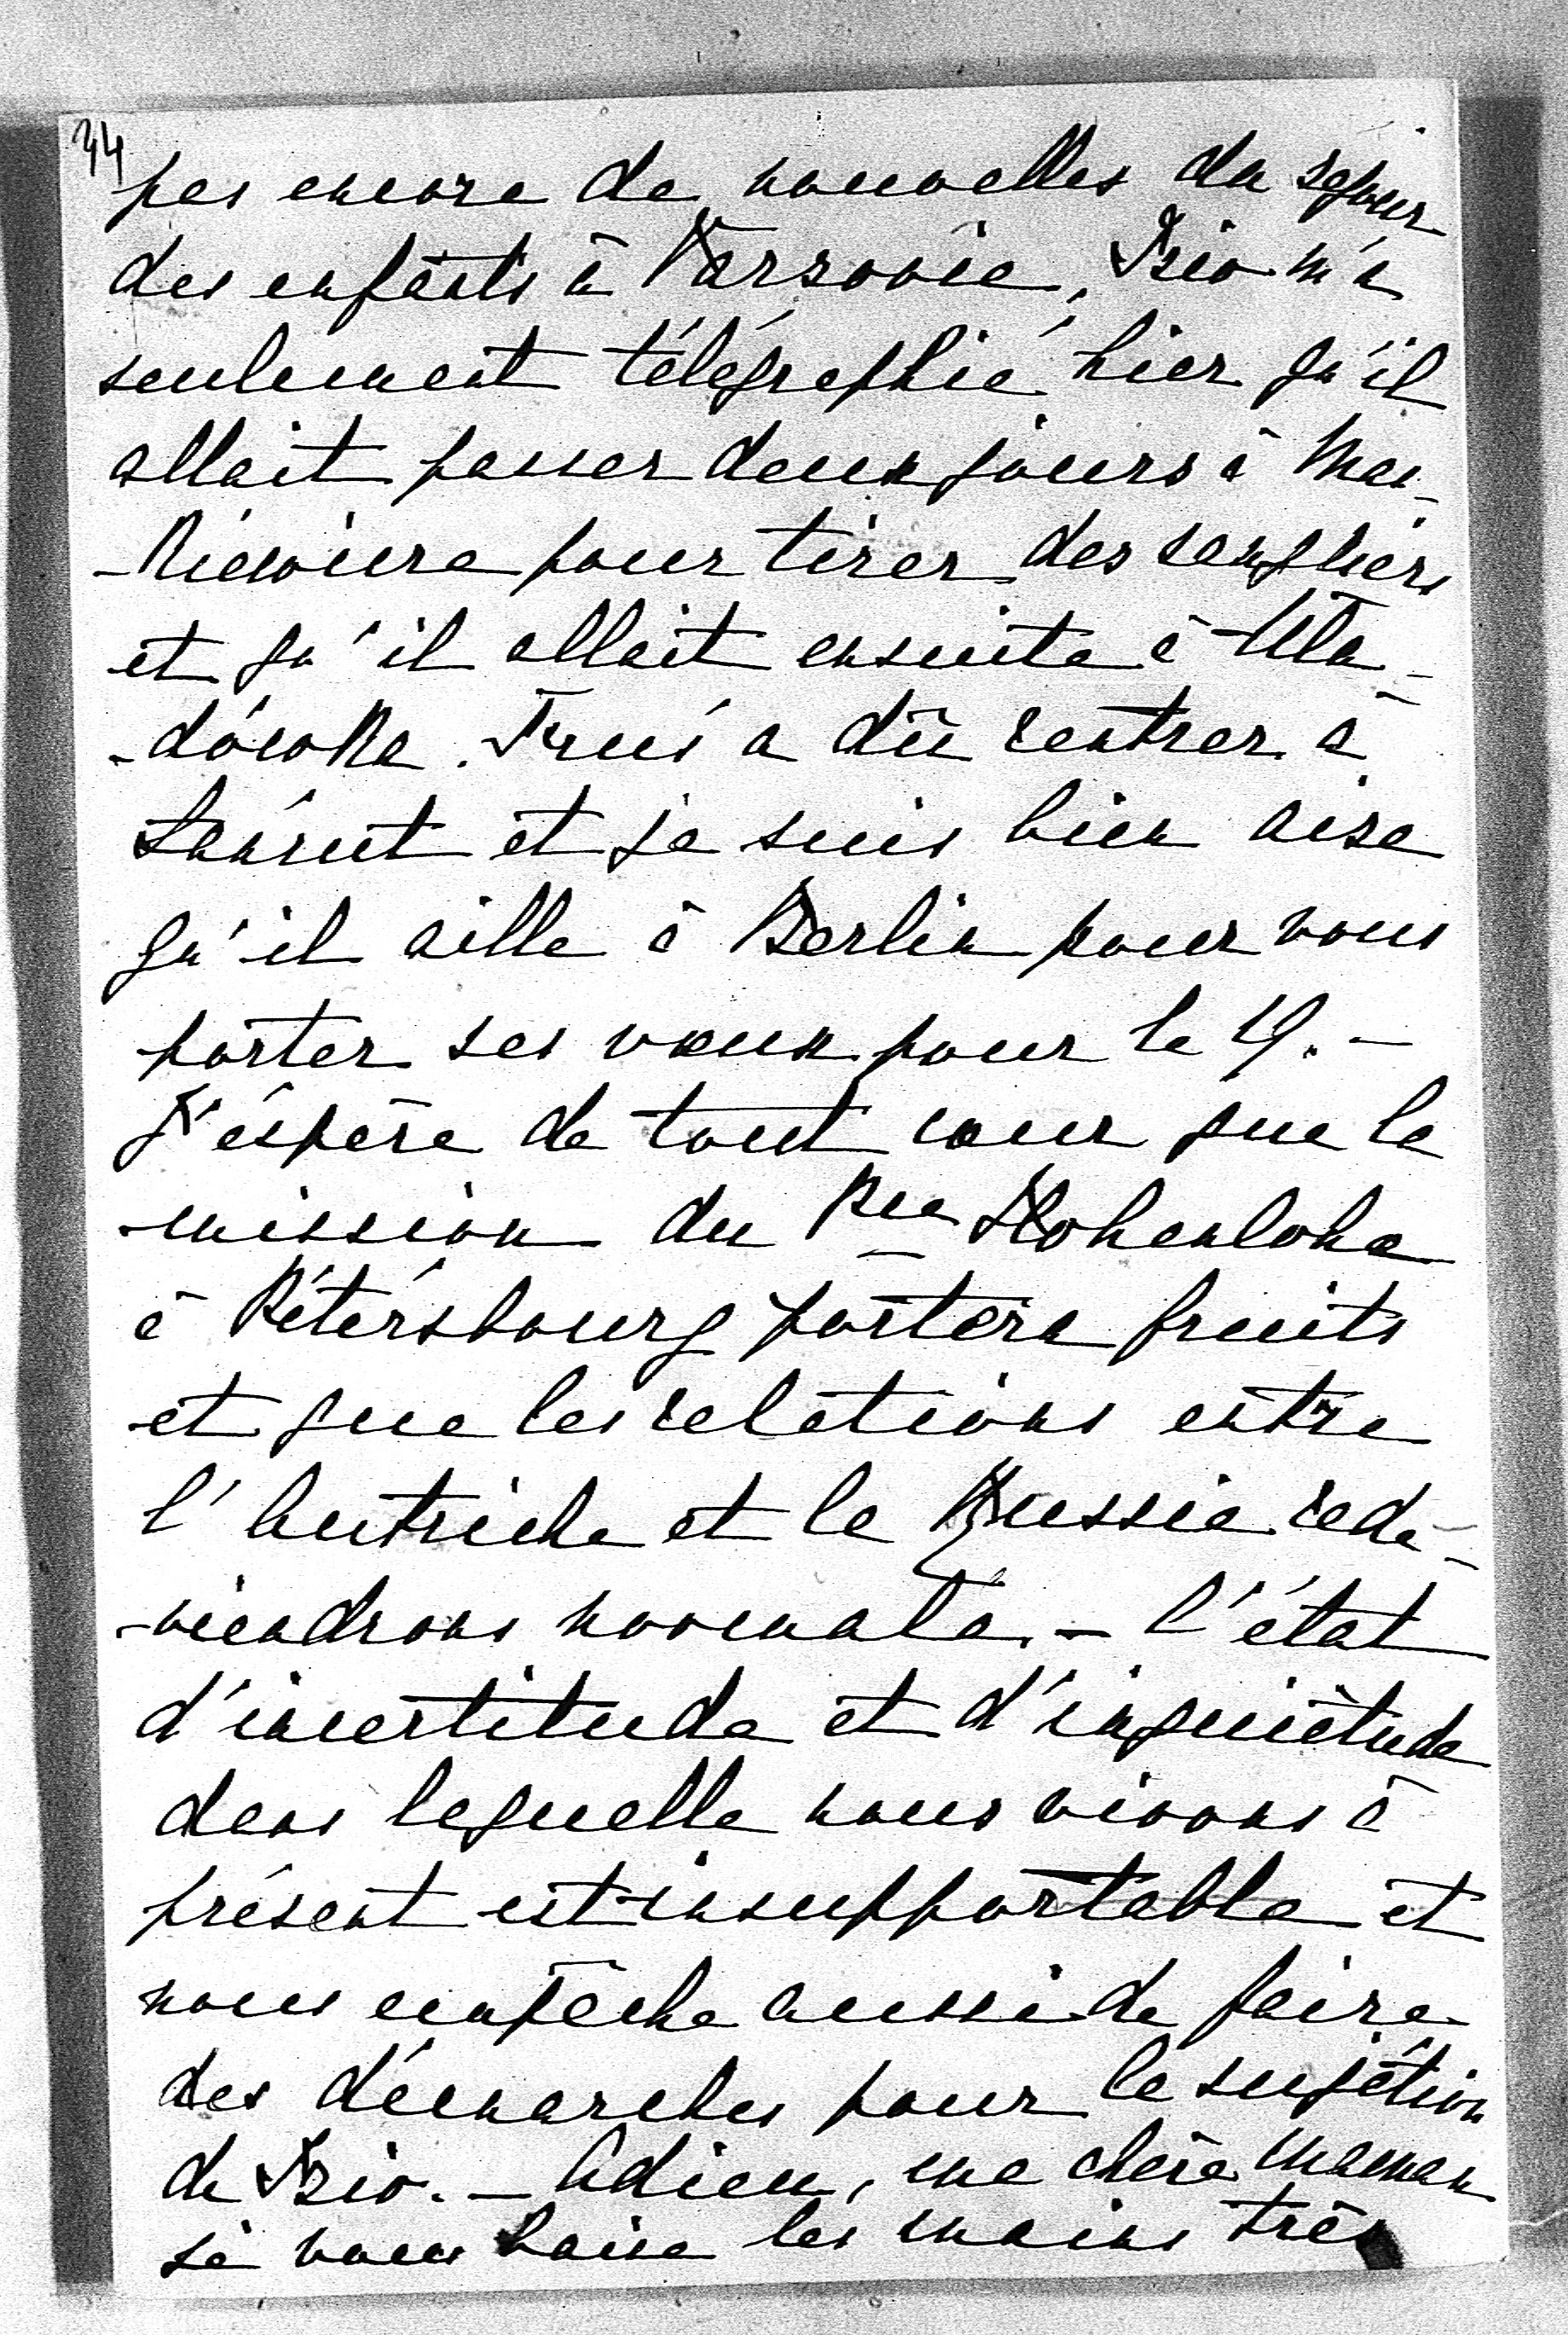 34
pas encore de nouvelles du séjour
des enfants à Varsovie, Jzio m'a
seulement télégraphié hier qu'il
allait passer deux jours à Man-
-kiewicze pour tirer des sangliers
et qu'il allait ensuite à Ula-
-dówka. Fruś a dû rentrer à
Łańcut et je suis bien aise
qu'il aille à Berlin pour vous
porter ses vœux pour le 19. –
J'éspère de tout cœur que la
mission du Pce Hohenlohe
à Pétérsbourg portera fruits
et que les relations entre
l'Autriche et la Russie rede-
-viendrons normale. – l'état
d'incertitude et d'inquiètude
dans laquelle nous vivons à
présent est insupportable et
nous empêche aussi de faire
des démarches pour la sujétion
de Jzio. – Adieu, ma chère Maman
je vous baise les mains très